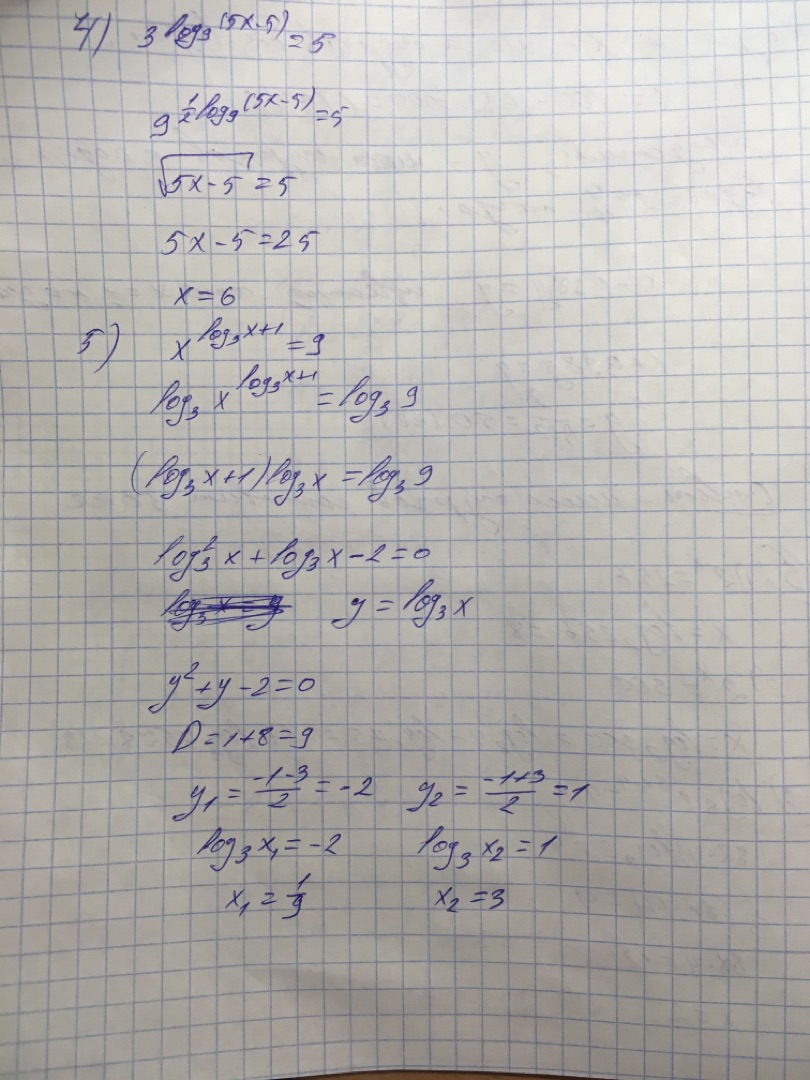 4) 3^log₉(5x-5) = 5
9^½log₉(5x-5) = 5
√5x-5 = 5
5x-5=25
x=6
5) x^log₃x+1 = 9
log₃ x^log₃x+1 = log₃ 9
(log₃x+1)log₃x = log₃ 9
log₃² x + log₃ x - 2 = 0
y = log₃ x
y²+y-2=0
D=1+8=9
y₁ = (-1-3)/2 = -2 y₂ = (-1+3)/2 = 1
log₃ x₁ = -2 log₃ x₂ = 1
x₁ = 1/9 x₂ = 3